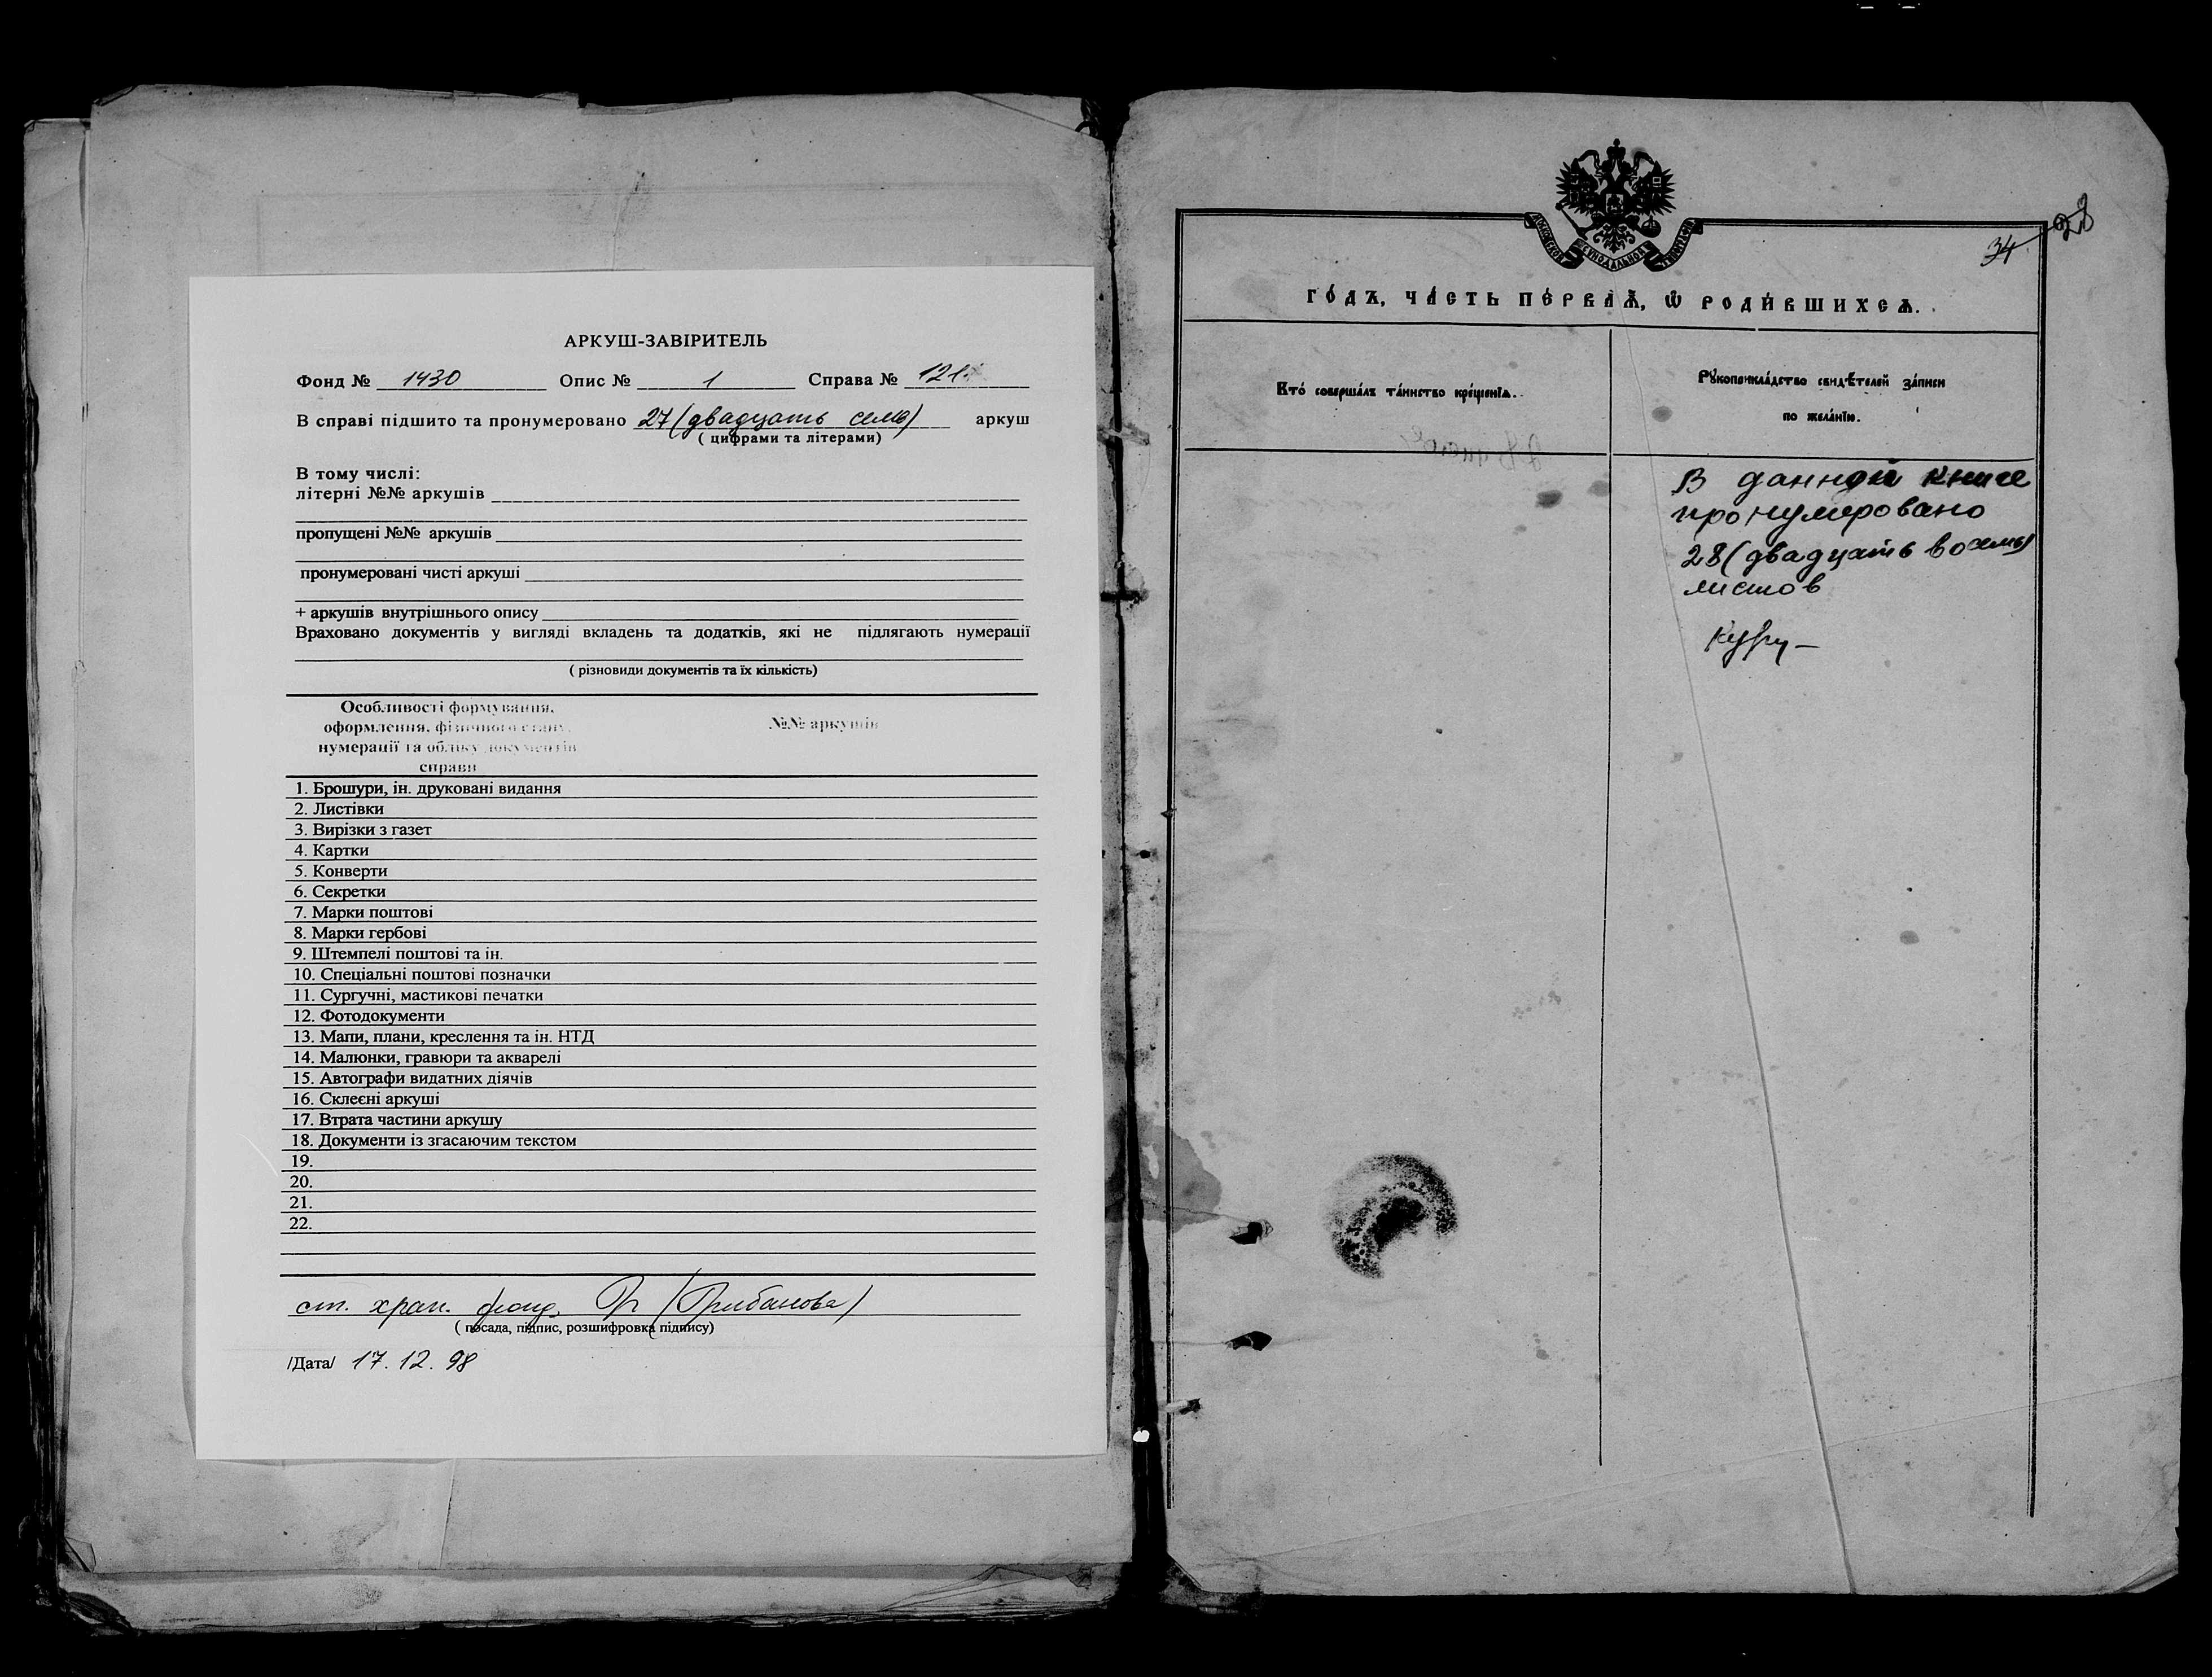 АРКУШ-ЗАВІРИТЕЛЬ
Фонд № 1430 Опис № 1 Справа № 121
В справі підшито та пронумеровано 27 (двадцать семь) аркуш
( цифрами та літерами)
В тому числі:
літерні №№ аркушів
пропущені №№ аркушів
пронумеровані чисті аркуші
+ аркушів внутрішнього опису
Враховано документів у вигляді вкладень та додатків, які не підлягають нумерації
( різновиди документів та їх кількість)
Особливості формування,
оформлення, фізичного стану,
нумерації та обліку документів
справи
№№ аркушів
1. Брошури, ін. друковані видання
2. Листівки
3. Вирізки з газет
4. Картки
5. Конверти
6. Секретки
7. Марки поштові
8. Марки гербові
9. Штемпелі поштові та ін.
10. Спеціальні поштові позначки
11. Сургучні, мастикові печатки
12. Фотодокументи
13. Мапи, плани, креслення та ін. НТД
14. Малюнки, гравюри та акварелі
15. Автографи видатних діячів
16. Склеєні аркуші
17. Втрата частини аркушу
18. Документи із згасаючим текстом
19.
20.
21.
22.
ст. хран. фонд. (Грибанова)
( посада, підпис, розшифровка підпису)
/Дата/ 17. 12. 98
28
34
МОСКОВСКОЙ СѴНОДАЛЬНОЙ ТИПОГРАФІИ
ГО́ДЪ, ЧА́СТЬ ПЕ́РВАѦ, Ѡ РОДИ́ВШИХСѦ.
Кто́ соверша́лъ та́инство креще́нїѧ.
Рꙋкоприкла́дство свидѣ́телей за́писи
по жела́нїю.
В данной книге
пронумеровано
28 (двадцать восемь)
листов